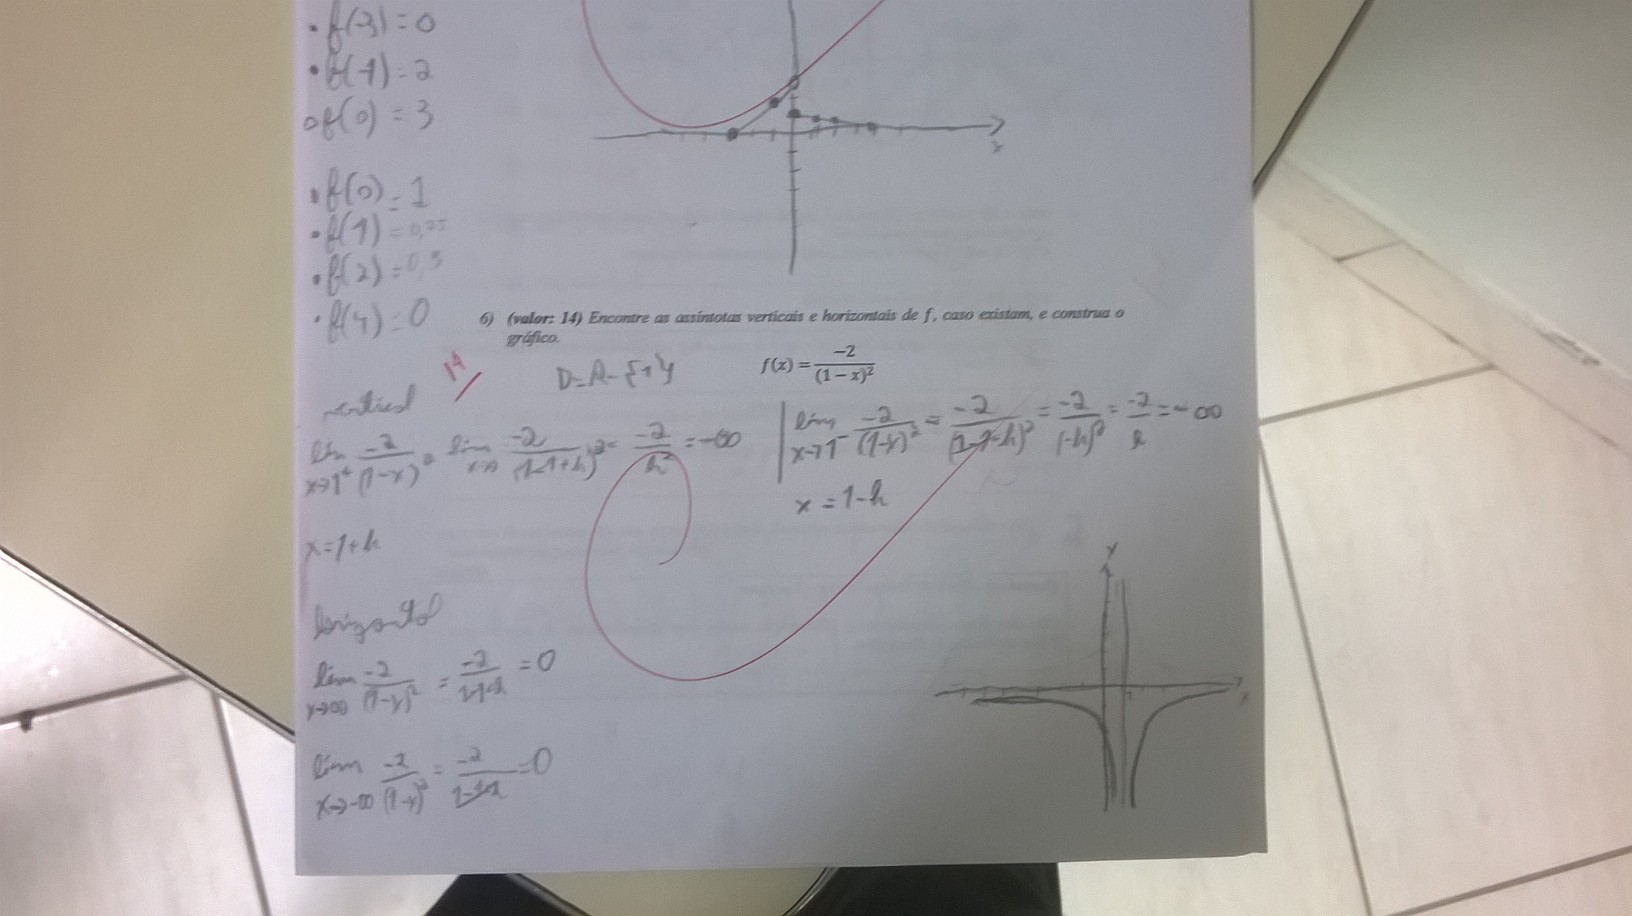 • f(-3) = 0
• f(-1) = 2
o f(0) = 3
• f(0) = 1
• f(1) = 0,75
• f(2) = 0,5
• f(4) = 0
x
6) (valor: 14) Encontre as assíntotas verticais e horizontais de f, caso existam, e construa o
gráfico.
f(x) = -2/(1 − x)²
14
D = R - {1}
vertical
lim x→1⁺ -2/(1-x)² = lim -2/(1-1+h)² = -2/h² = -∞
x = 1+h
lim x→1⁻ -2/(1-x)² = -2/(1-1-h)² = -2/(-h)² = -2/h = -∞
x = 1-h
horizontal
lim x→∞ -2/(1-x)² = -2 = 0
lim x→-∞ -2/(1-x)² = -2 = 0
y
1
x